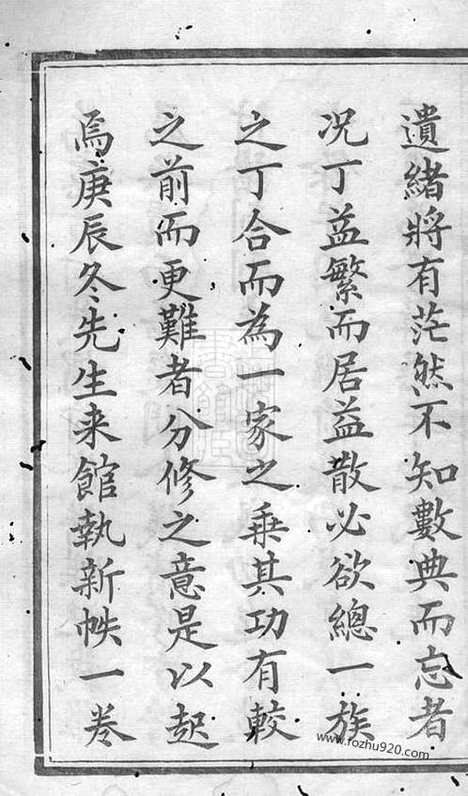 遺緒將有茫然不知數典而忘者
况丁益繁而居益散必欲總一族
之丁合而為一家之乗其功有較
之前而更難者分修之意是以起
焉庚辰冬先生来館執新帙一卷
www.fozhu920.com